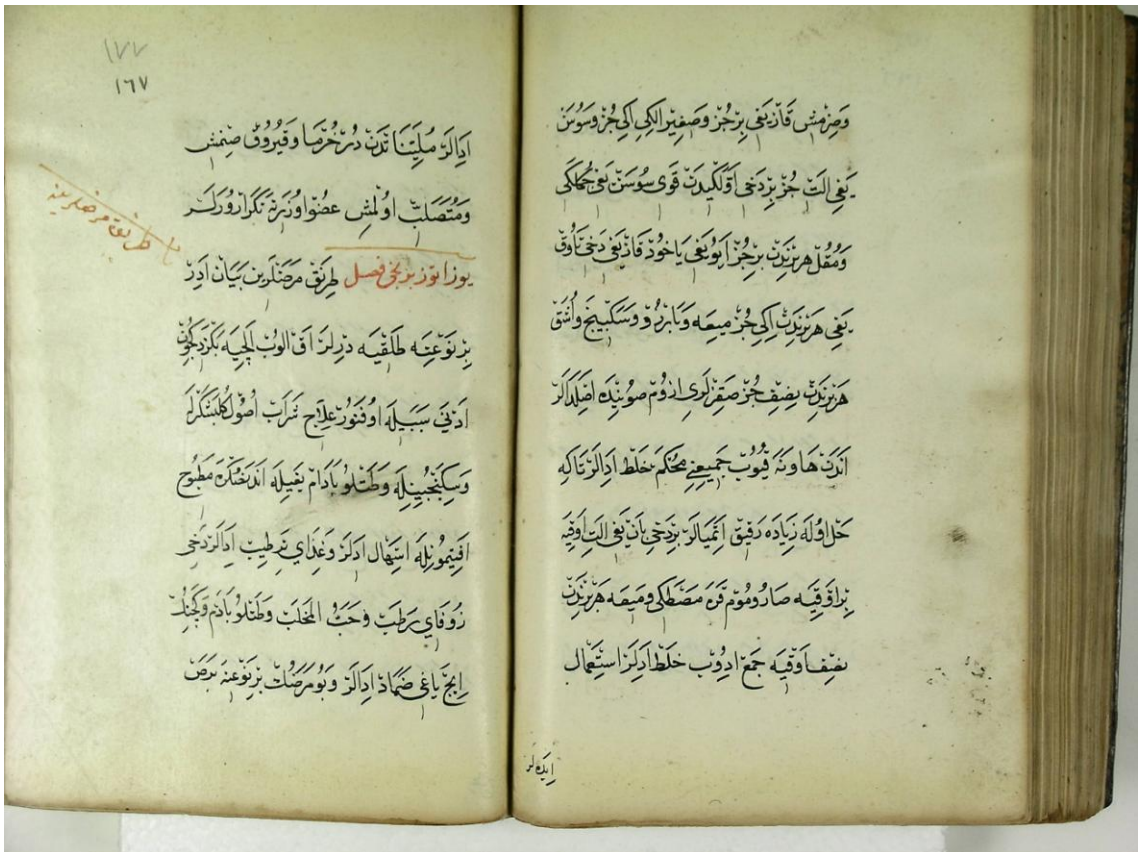 وصزمش قاز يغى بر جز وصغير الكى اكى جز وسوسن
يغى التى جز بر دخى اولكيدن قوى سوسن يغى
ومقل هر برندن بر جز آيو يغى ياخود قاز يغى دخى تاوق
يغى هر برندن اكى جز ميعه وبارزد وسكبينج واشق
هر برندن نصف جز صقزلرى ازوم صوينده اصلدالر
اندن هاونه قيوب جميعنى محكم خلط ايدالر تاكه
حل اوله زياده رقيق اتميالر بر دخى يغى الت اوقيه
بر اوقيه صارو موم قره مصطكى وميعه هر برندن
نصف اوقيه جمع ادوب خلط ادلر استعمال
ايده لر
١٧٧
١٦٧
ادالر ملينا تدن در خرما وقيروق صنمش
ومتصلب اولمش عضو اوزرنه تكرار اورلر
يوز اوتوز برنجى فصل طرنق مرضلرين بيان ادر
بر نوعنه طلقيه درلر اق الوب
ادنى سببله اوفنور علاج شراب اصول كلشكرله
وسكنجبينله وطتلو بادام يغيله اندنصكره مطبوح
افتيمونله اسهال ادلر وغذاى ترطيب ادالر دخى
زوفاى رطب وحب المحلب وطتلو بادم وكنجد
ايج ياغى ضماد ادالر وبو مرضك بر نوعنه برص
طرنق مرضلرينه